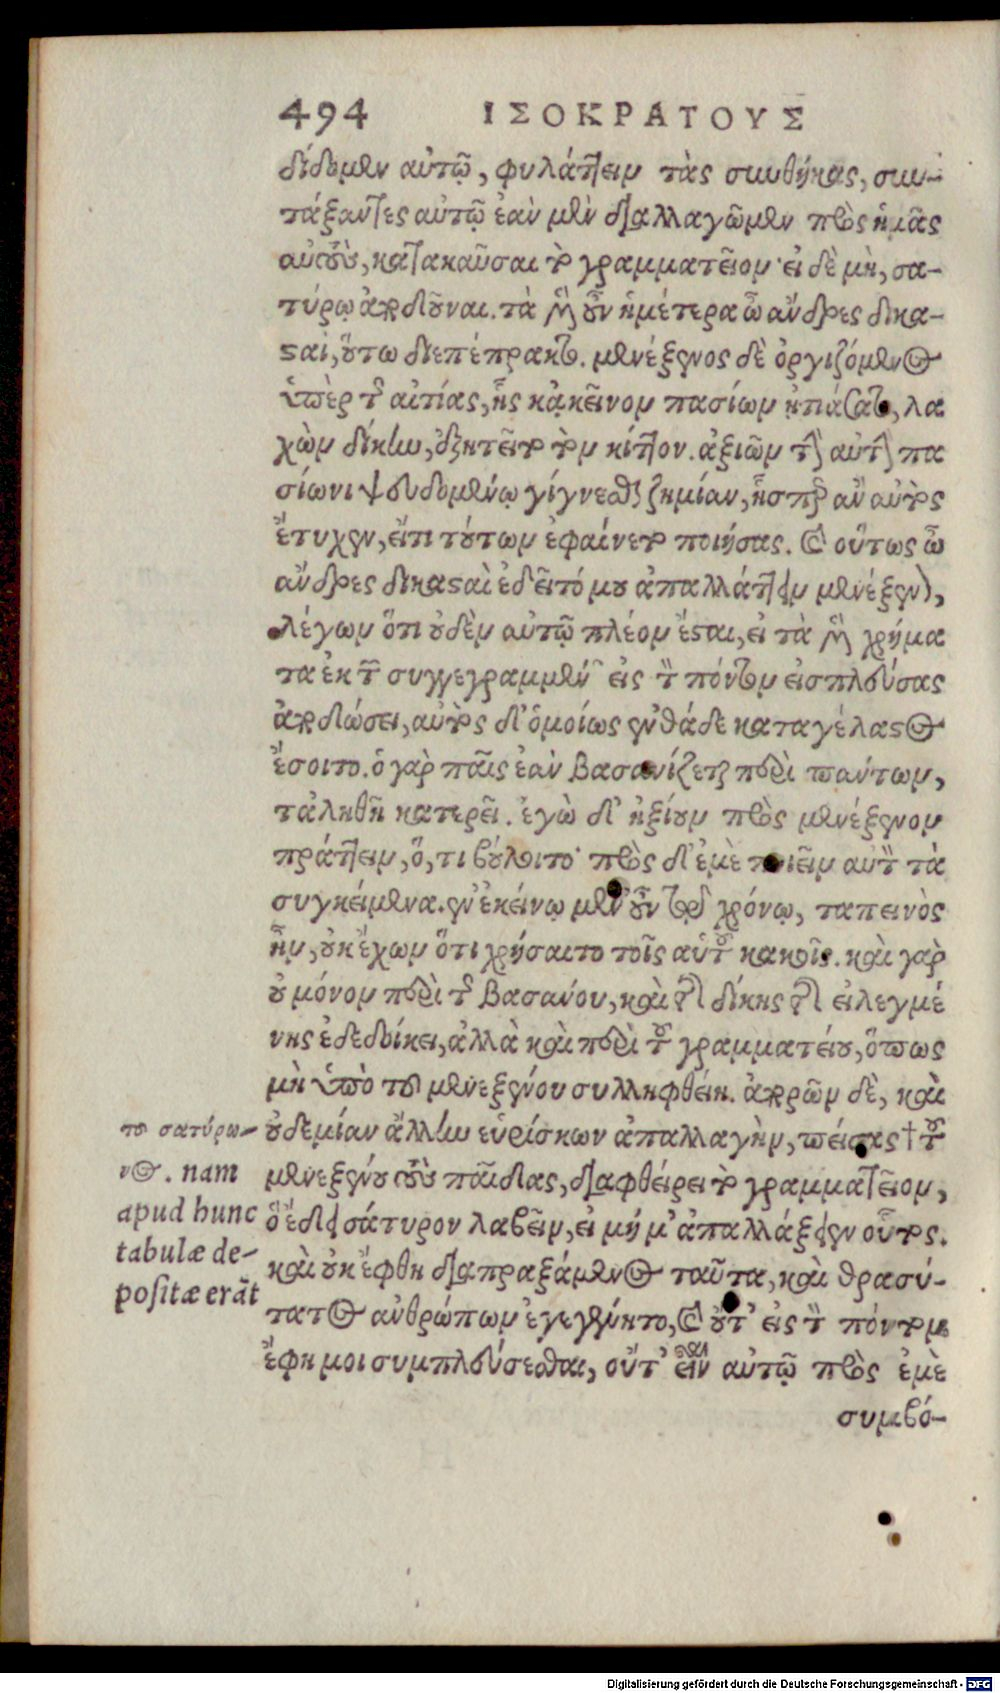 494 ΙΣΟΚΡΑΤΟΥΣ
δίδομεν αὐτῷ, φυλάττειν τὰς συνθήκας, συν-
τάξαντες αὐτῷ ἐὰν μὲν διαλλαγῶμεν πρὸς ἡμᾶς
αὐτοὺς, κατακαῦσαι τὸ γραμματεῖον· εἰ δὲ μὴ, σα-
τύρῳ ἀποδοῦναι. τὰ μὲν οὖν ἡμέτερα ὦ ἄνδρες δικα-
σαὶ, οὕτω διεπέπρακτο. μενέξενος δὲ ὀργιζόμενος
ὑπὲρ τῆς αἰτίας, ἧς κᾀκεῖνον πασίων ᾐτιάσατο, λα
χὼν δίκην, ἐξῃτεῖτο τὸν κίττον. ἀξιῶν τὴν αὐτὴν πα
σίωνι ψευδομένῳ γίγνεσθαι ζημίαν, ἧσπερ ἂν αὐτὸς
ἔτυχεν, εἴ τι τούτων ἐφαίνετο ποιήσας. καὶ οὕτως ὦ
ἄνδρες δικασαὶ ἐδεῖτό μου ἀπαλλάττειν μενέξενον,
λέγων ὅτι οὐδὲν αὐτῷ πλέον ἔσται, εἰ τὰ μὲν χρήμα
τα ἐκ τῶν συγγεγραμμένων εἰς τὸν πόντον εἰσπλεύσας
ἀποδώσει, αὐτὸς δ' ὁμοίως ἐνθάδε καταγέλαστος
ἔσοιτο. ὁ γὰρ παῖς ἐὰν βασανίζεται περὶ πάντων,
τἀληθῆ κατερεῖ. ἐγὼ δ' ἠξίουν πρὸς μενέξενον
πράττειν, ὅ, τι βούλοιτο· πρὸς δ' ἐμὲ ποιεῖν αὐτὸν τὰ
συγκείμενα. ἐν ἐκείνῳ μὲν οὖν τῷ χρόνῳ, ταπεινὸς
ἦν, οὐκ ἔχων ὅτι χρήσαιτο τοῖς αὑτοῦ κακοῖς. καὶ γὰρ
οὐ μόνον περὶ τῆς βασάνου, καὶ τῆς δίκης τῆς εἰλεγμέ
νης ἐδεδοίκει, ἀλλὰ καὶ περὶ τοῦ γραμματείου, ὅπως
μὴ ὑπὸ τοῦ μενεξένου συλληφθείη. ἀπορῶν δὲ, καὶ
οὐδεμίαν ἄλλην εὑρίσκων ἀπαλλαγὴν, πείσας † τοῦ
μενεξένου τοὺς παῖδας, διαφθείρει τὸ γραμματεῖον,
ὃ ἔδει σάτυρον λαβεῖν, εἰ μή μ' ἀπαλλάξειεν οὗτος.
καὶ οὐκ ἔφθη διαπραξάμενος ταῦτα, καὶ θρασύ-
τατος ἀνθρώπων ἐγεγένητο, καὶ οὔτ' εἰς τὸν πόντον
ἔφη μοι συμπλεύσεσθαι, οὔτ' εἶναι αὐτῷ πρὸς ἐμὲ
συμβό-
τοῦ σατύρω-
νος. nam
apud hunc
tabulæ de-
positæ erāt
Digitalisierung gefördert durch die Deutsche Forschungsgemeinschaft - DFG